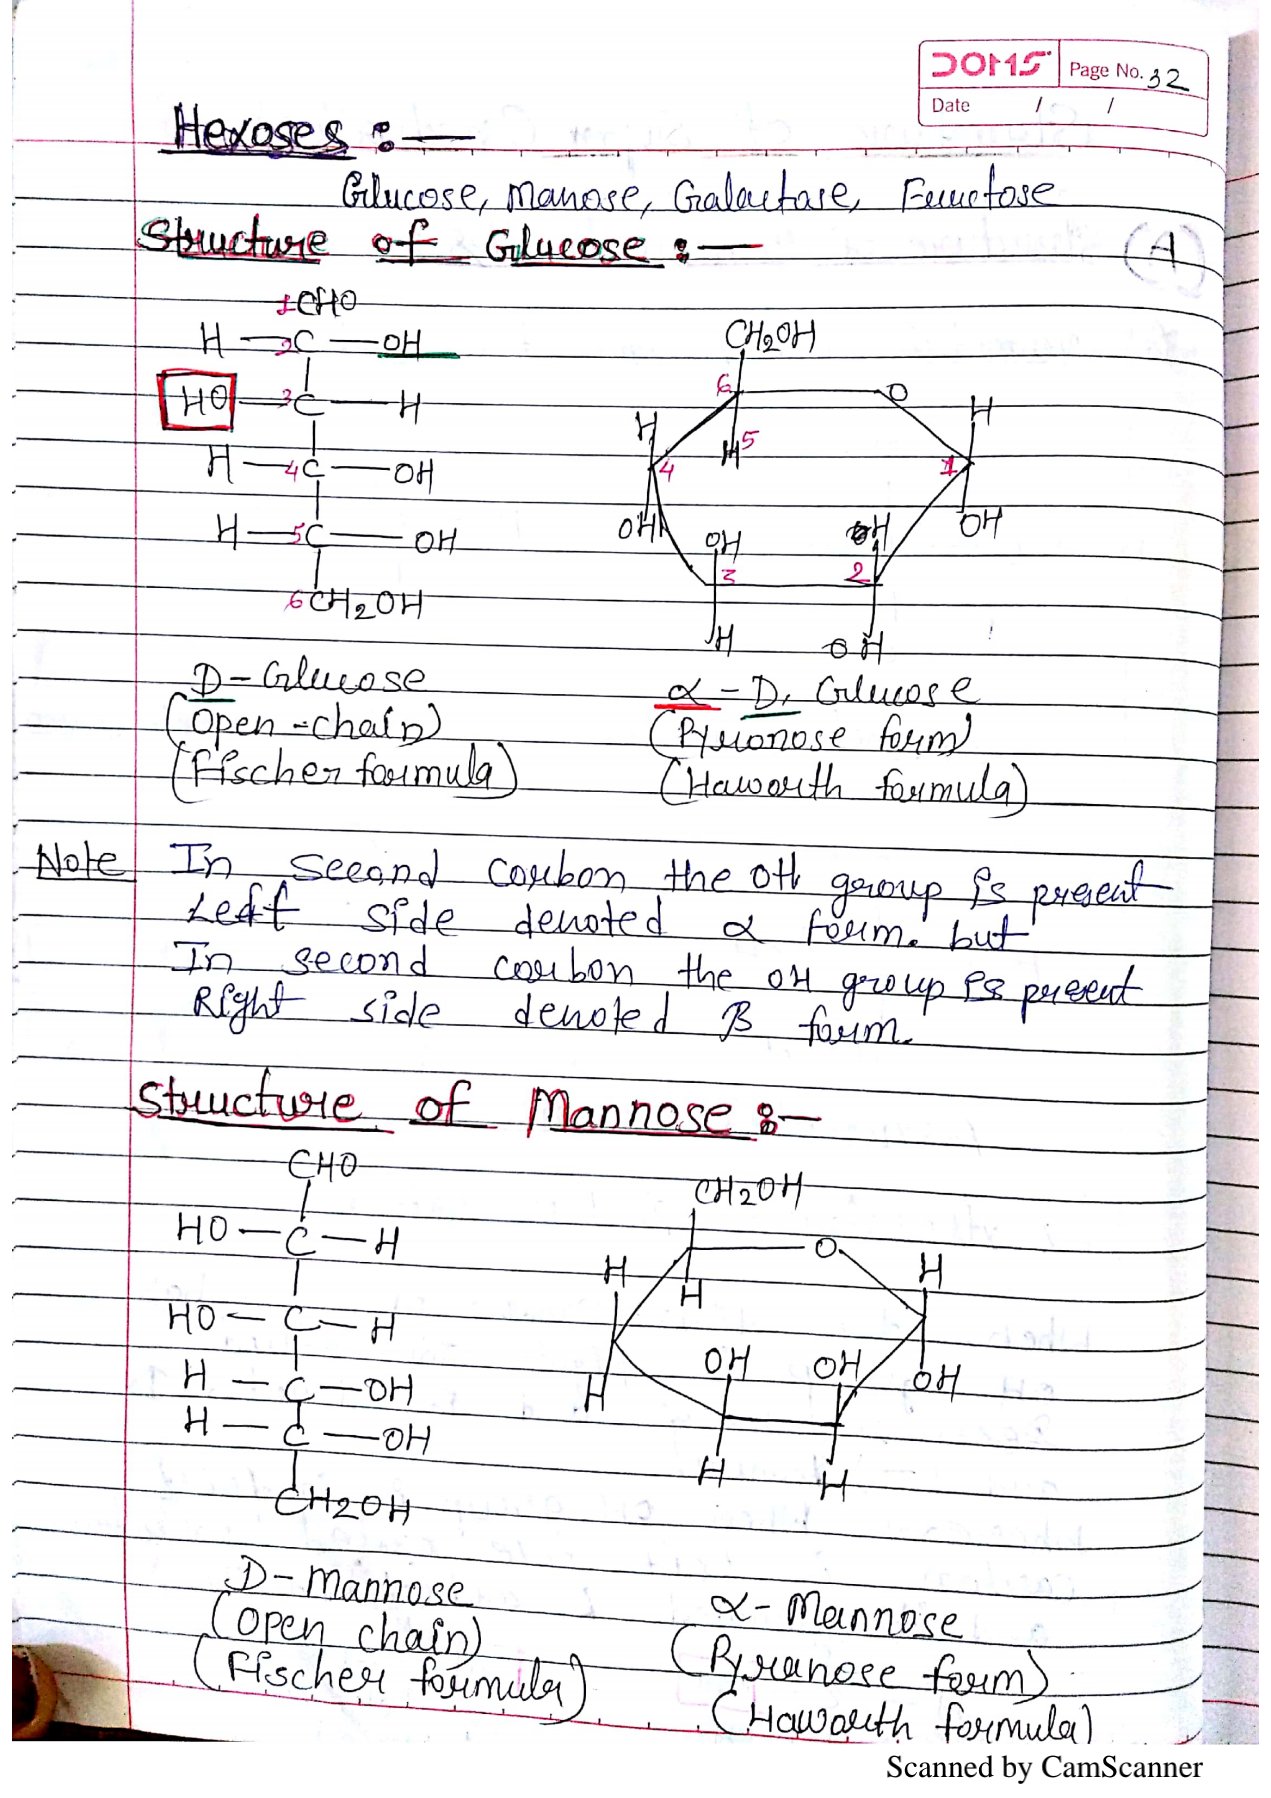 DOMS Page No. 32
Date / /
Hexoses :—
Glucose, Manose, Galactase, Fructose
Structure of Glucose :—
(A)
1CHO
H — 2C — OH
HO — 3C — H
H — 4C — OH
H — 5C — OH
6CH2OH
CH2OH
6 O
H H
H 5
4 1
OH OH OH OH
3 2
H OH
D - Glucose
(Open - chain)
(Fischer formula)
α - D, Glucose
(Pyronose form)
(Haworth formula)
Note In second carbon the OH group is present
Left side denoted α form. but
In second carbon the OH group is present
Right side denoted B form.
Structure of Mannose :—
CHO
HO — C — H
HO — C — H
H — C — OH
H — C — OH
CH2OH
CH2OH
O
H H
H
OH OH OH
H
H H
D - Mannose
(Open chain)
(Fischer formula)
α - Mannose
(Pyranose form)
(Haworth formula)
Scanned by CamScanner